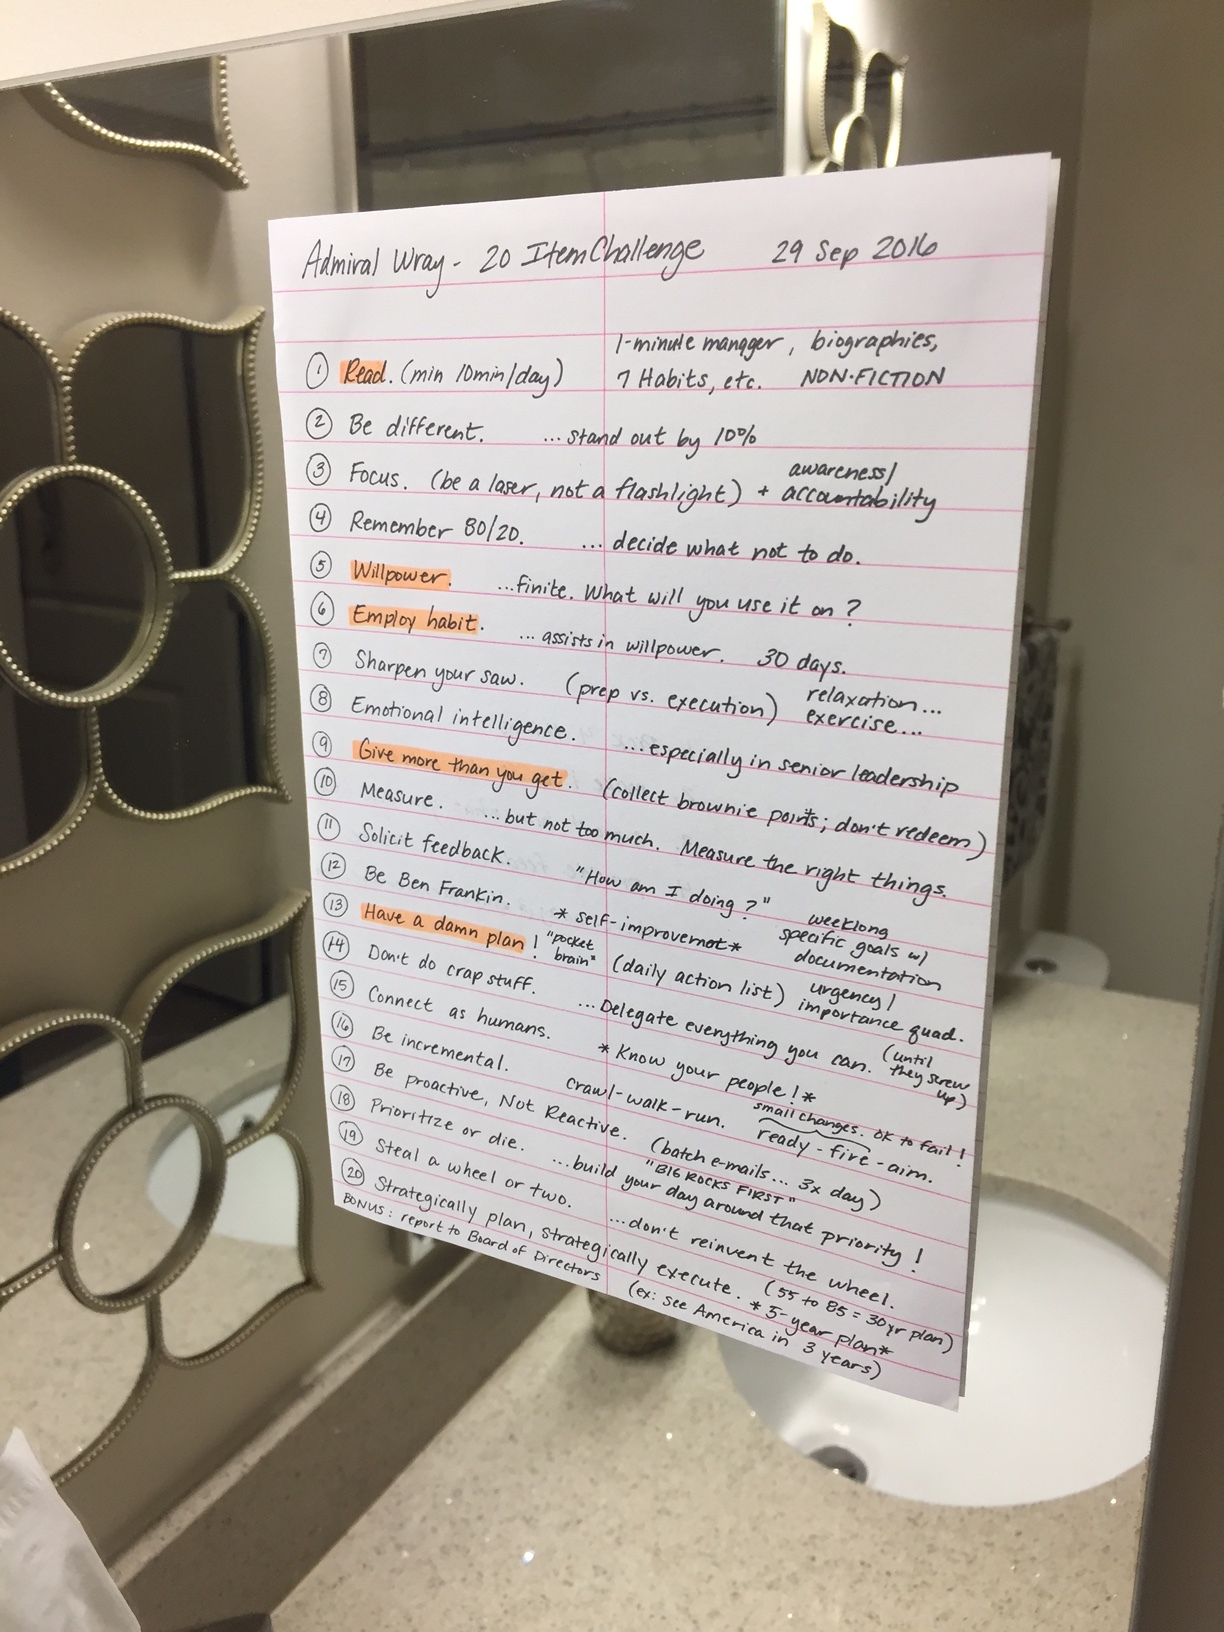 Admiral Wray - 20 Item Challenge 29 Sep 2016
1-minute manager, biographies,
① Read. (min 10min/day) 7 Habits, etc. NON-FICTION
② Be different. ...stand out by 10%
③ Focus. (be a laser, not a flashlight) + awareness/
accountability
④ Remember 80/20. ... decide what not to do.
⑤ Willpower. ...finite. What will you use it on?
⑥ Employ habit. ... assists in willpower. 30 days.
⑦ Sharpen your saw. (prep vs. execution) relaxation...
exercise...
⑧ Emotional intelligence. ...especially in senior leadership
⑨ Give more than you get. (collect brownie points; don't redeem)
⑩ Measure. ...but not too much. Measure the right things.
⑪ Solicit feedback. "How am I doing?"
⑫ Be Ben Frankin. * self-improvemnt* weeklong
specific goals w/
documentation
⑬ Have a damn plan! "pocket
brain" (daily action list) urgency/
importance quad.
⑭ Don't do crap stuff. ...Delegate everything you can. (until
they screw
up)
⑮ Connect as humans. *Know your people!*
⑯ Be incremental. crawl-walk-run. small changes. OK to fail!
ready-fire-aim.
⑰ Be proactive, Not Reactive. (batch e-mails... 3x day)
⑱ Prioritize or die. "BIG ROCKS FIRST"
...build your day around that priority!
⑲ Steal a wheel or two. ...don't reinvent the wheel.
⑳ Strategically plan, strategically execute. (55 to 85 = 30yr plan)
*5-year plan*
BONUS: report to Board of Directors (ex: see America in 3 years)